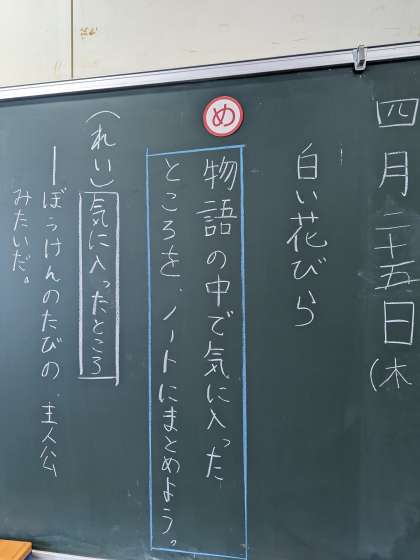 四月二十五日(木
白い花びら
め
物語の中で気に入った
ところを、ノートにまとめよう。
(れい)気に入ったところ
ーぼうけんのたびの、主人公
みたいだ。